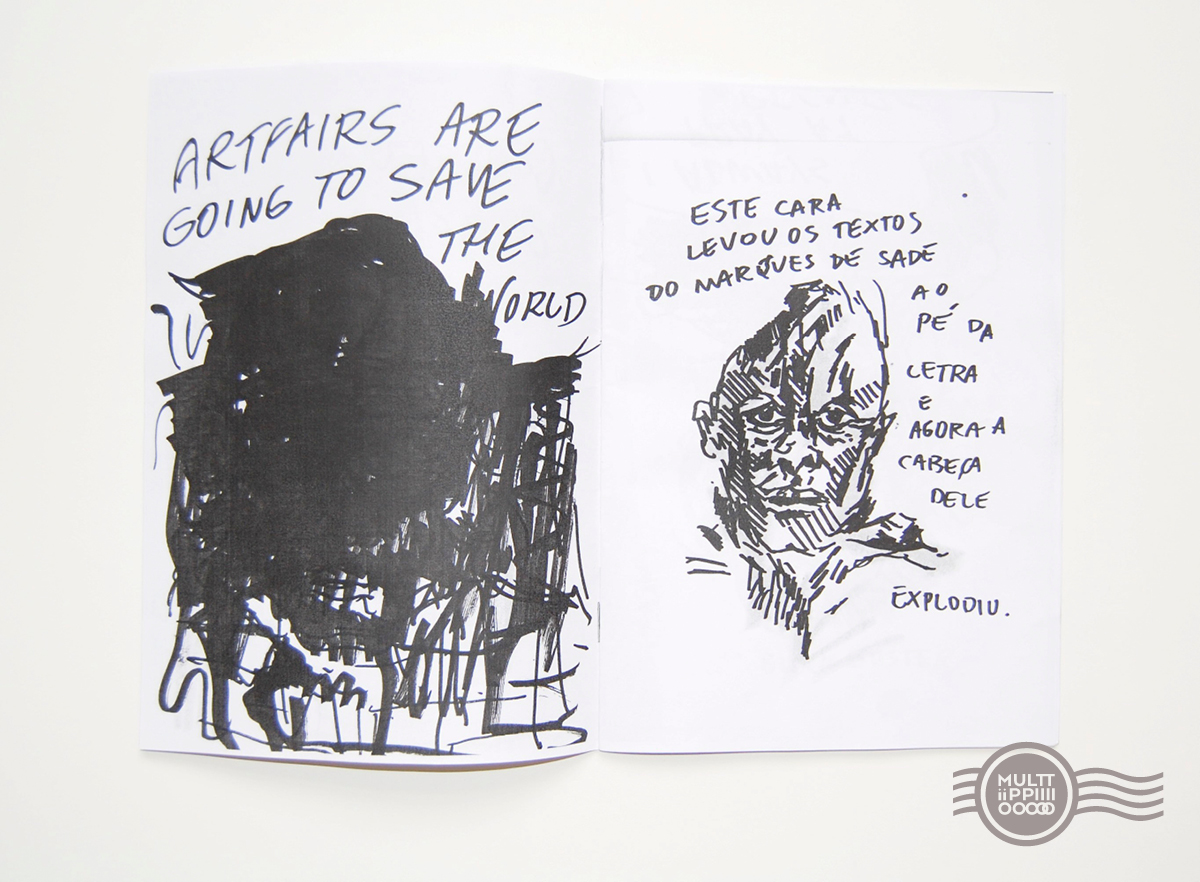 ARTFAIRS ARE
GOING TO SAVE
THE
WORLD
ESTE CARA
LEVOU OS TEXTOS
DO MARQUES DE SADE
AO
PÉ DA
LETRA
E
AGORA A
CABEÇA
DELE
EXPLODIU.
MULTT
iiPPIIII
OOOOO